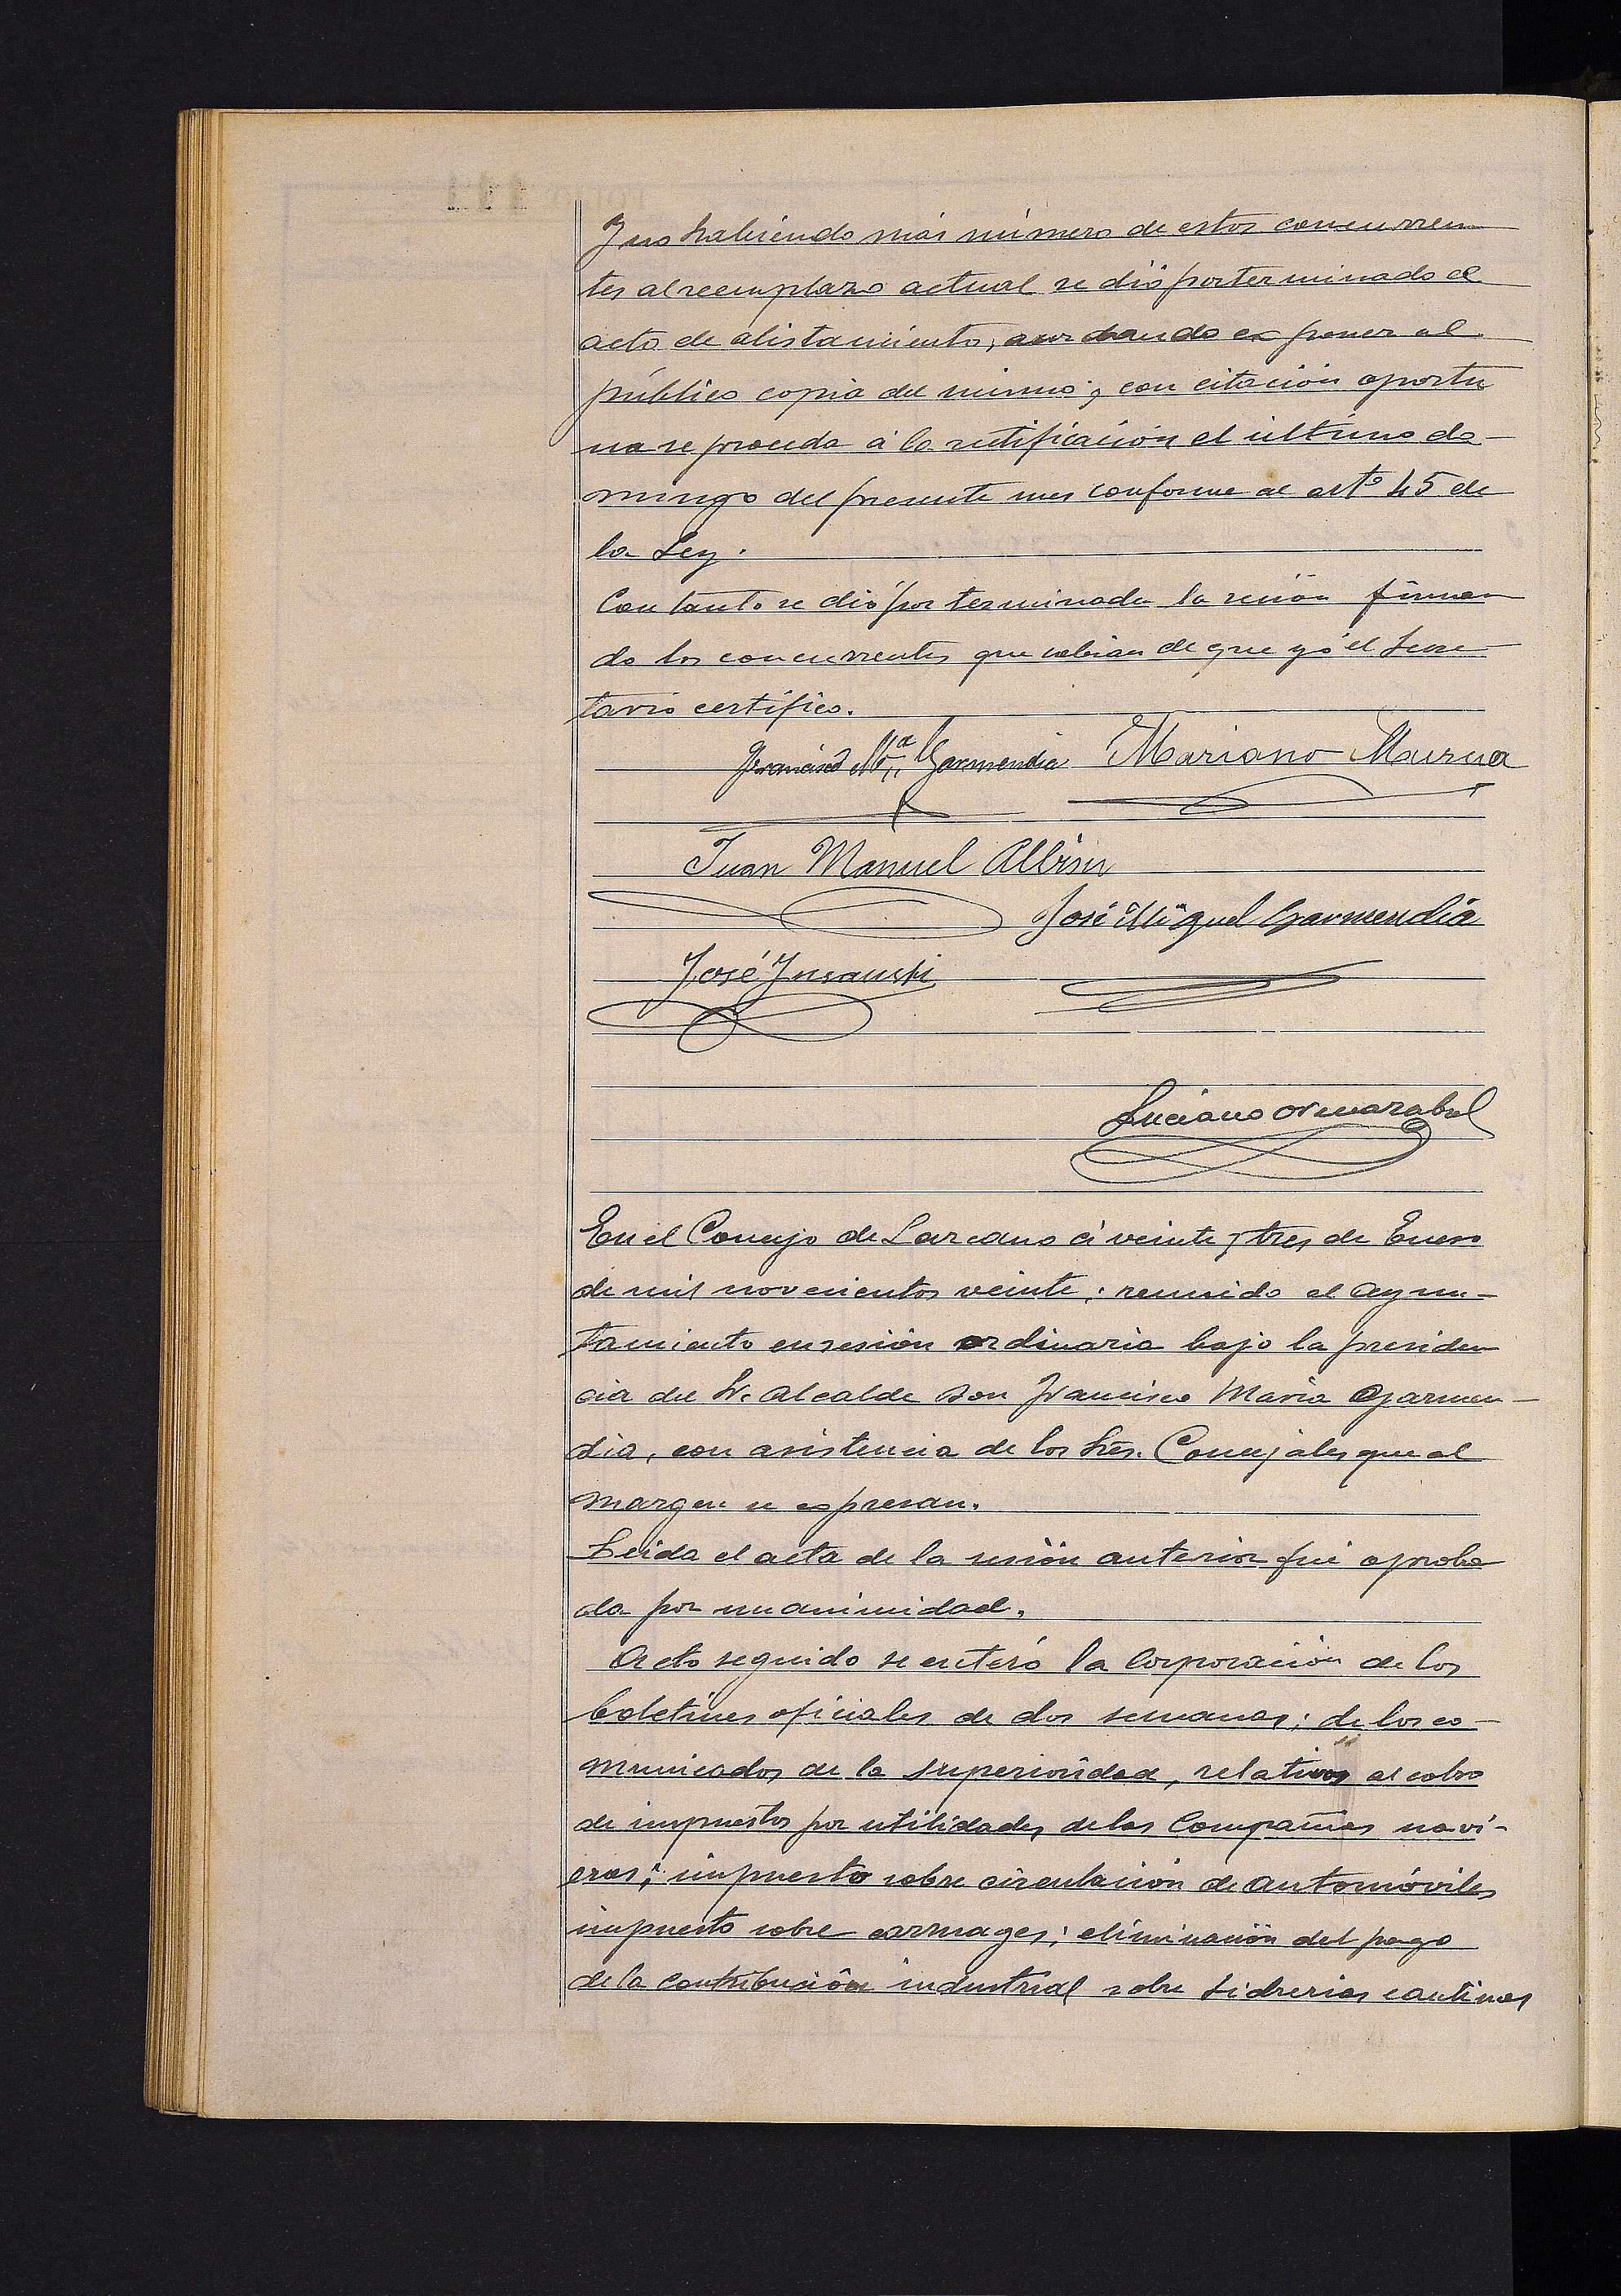 Y no habiendo más número de estos concurren
tes al reemplazo actual se dió por terminado el
acto de alistamiento, acordando exponer al
público copia del mismo y con citación oportu
na se proceda á la rectificación el último do-
mingo del presente mes conforme al artº 45 de
la Ley.
Con tanto se dió por terminada la sesión firman
do los concurrentes que sabían de que yó el Secre
tario certifico.
Francisco Mª Garmendia Mariano Murua
Juan Manuel Albisu
José Miguel Garmendia
José Insausti
Luciano Ormazabal
En el Concejo de Lazcano á veinte y tres de Enero
de mil novecientos veinte; reunido el Ayun-
tamiento en sesión ordinaria bajo la presiden
cia del Sr. Alcalde Don Francisco Maria Garmen-
dia, con asistencia de los Sres. Concejales que al
margen se expresan.
Leida el acta de la sesión anterior fué aproba
da por unanimidad.
Acto seguido se enteró la Corporación de los
boletines oficiales de dos semanas; de los co-
municados de la Superioridad, relativos al cobro
de impuestos por utilidades de las Compañias navi-
eras; impuesto sobre circulación de automóviles
impuesto sobre carruages; eliminación del pago
de la contribución industrial sobre sidrerias cantinas